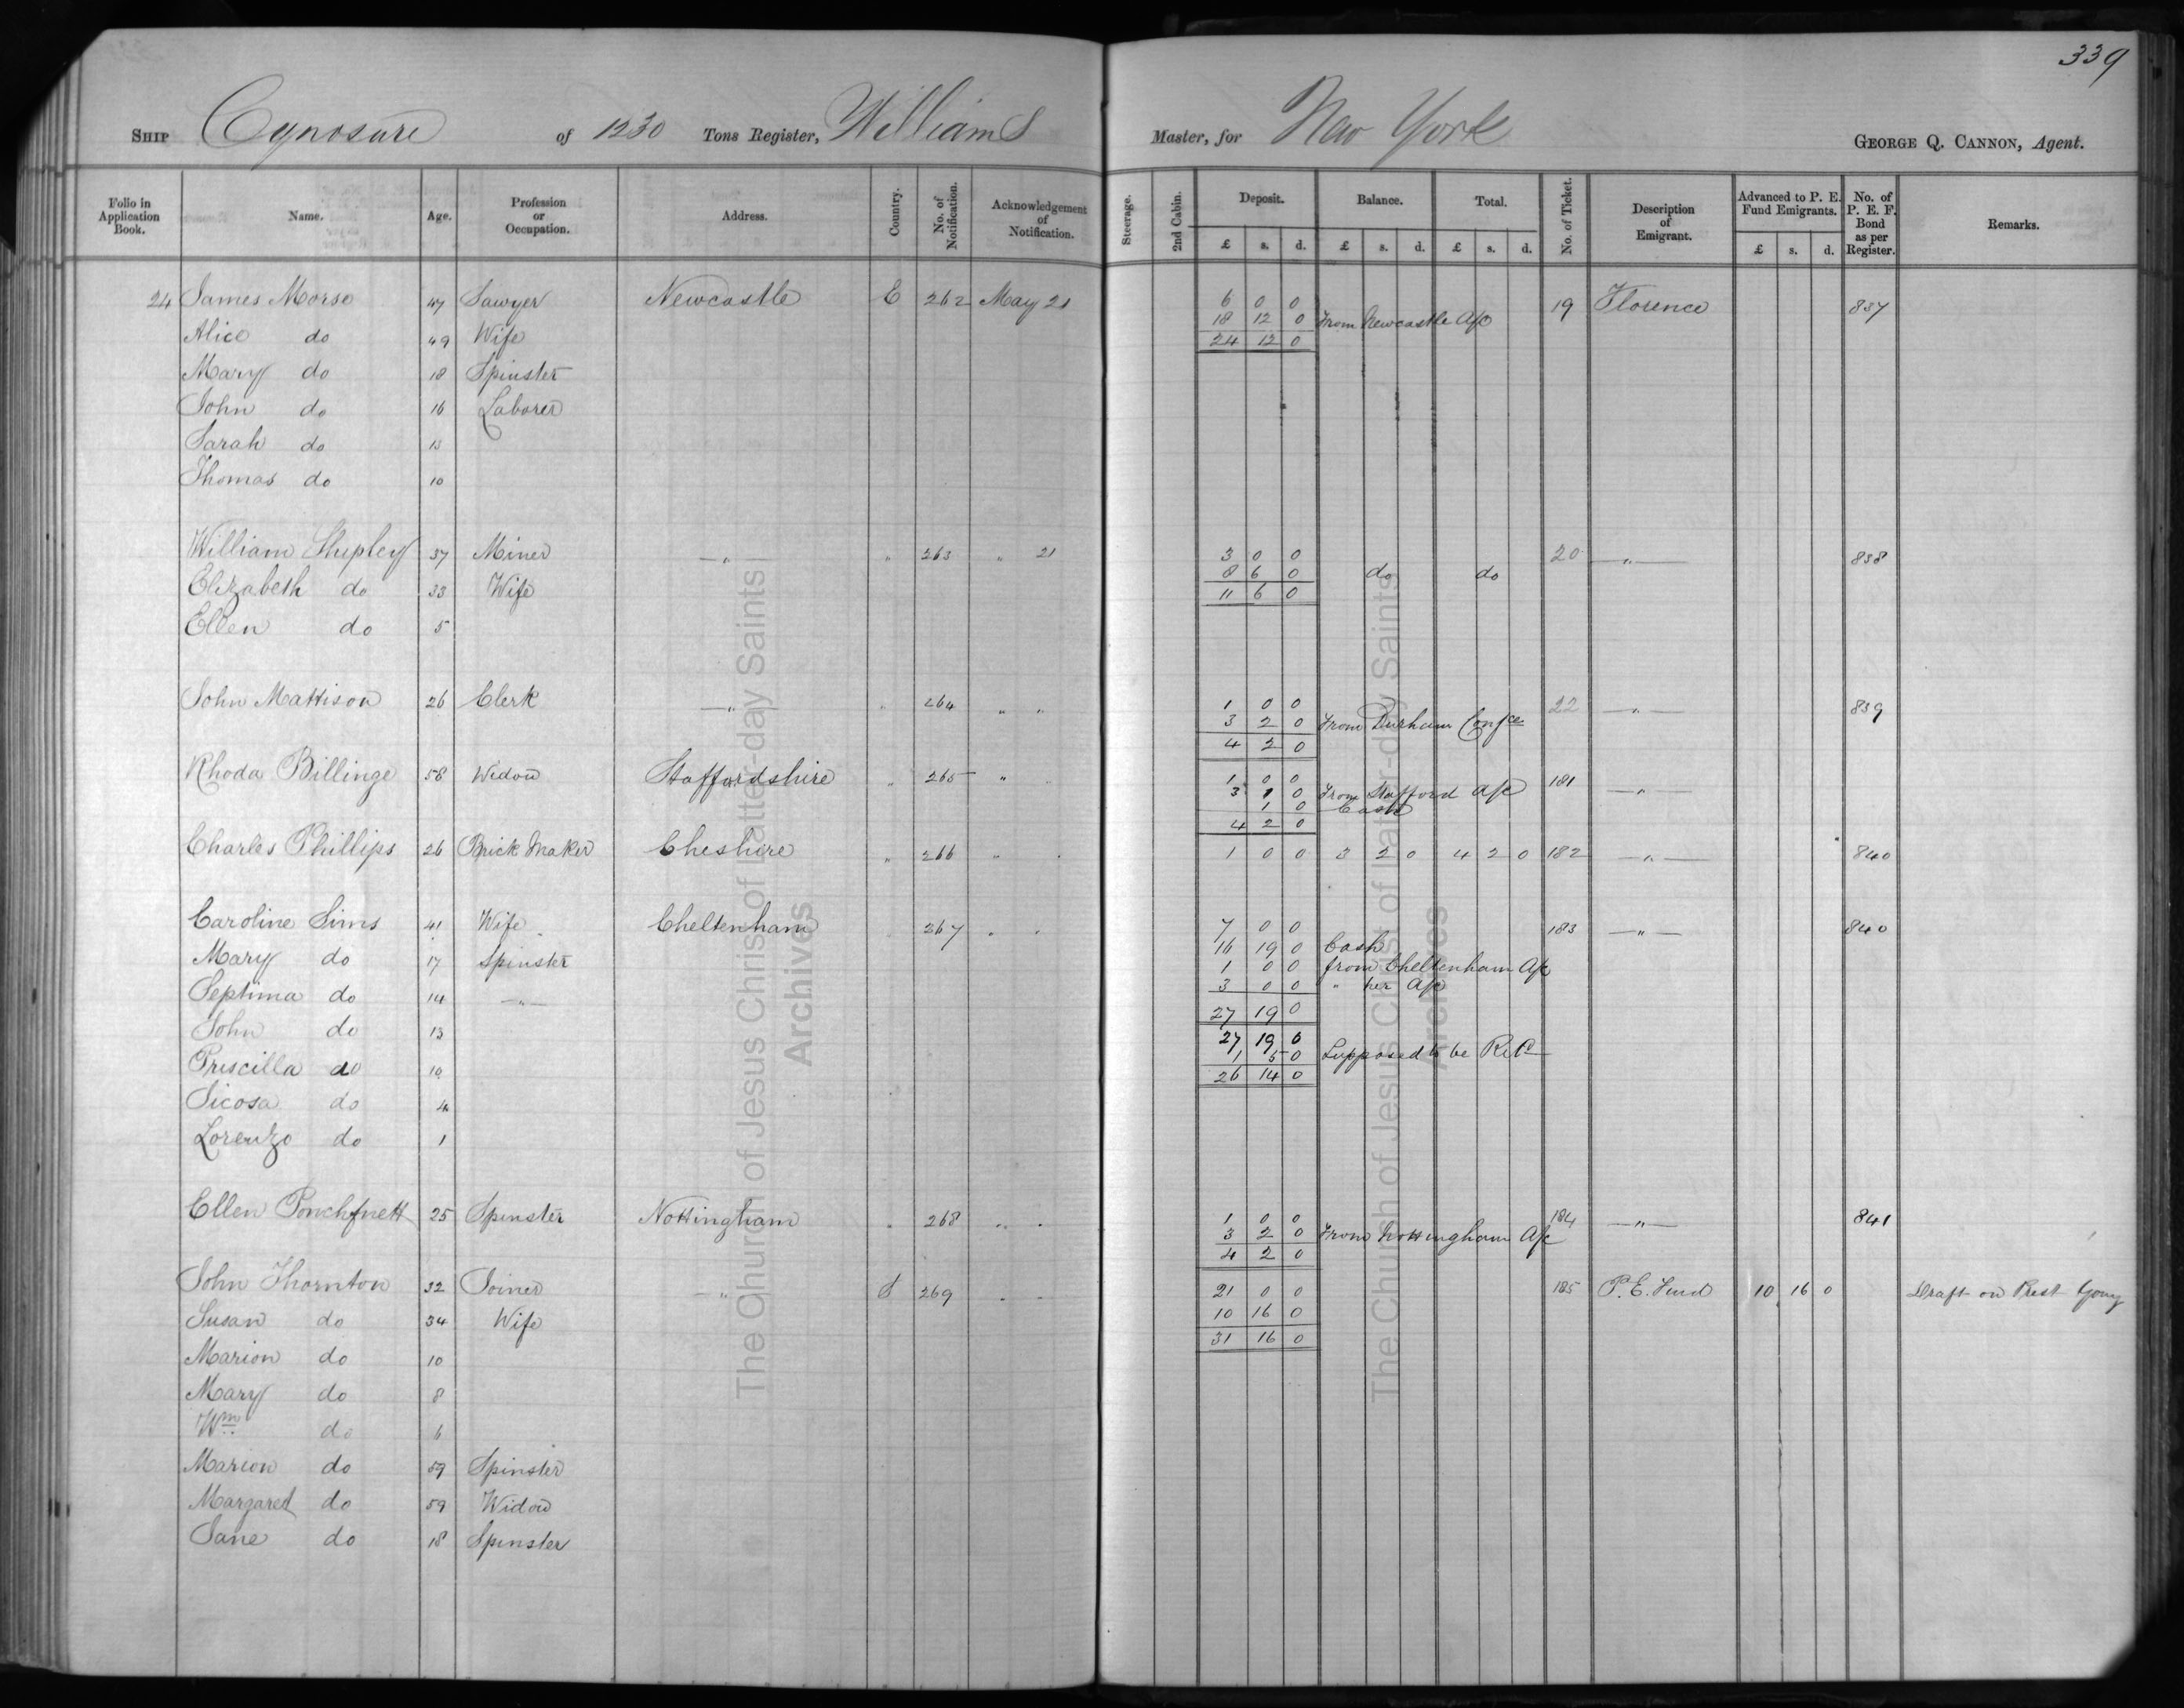 339
SHIP Cynosure of 1230 Tons Register, Williams Master, for New York GEORGE Q. CANNON, Agent.
Folio in Application Book. Name. Age. Profession or Occupation. Address. Country. No. of Notification. Acknowledgement of Notification. Steerage. 2nd Cabin. Deposit. £ s. d. Balance. £ s. d. Total. £ s. d. No. of Ticket. Description of Emigrant. Advanced to P. E. Fund Emigrants. £ s. d. No. of P. E. F. Bond as per Register. Remarks.
24 James Morse 47 Sawyer Newcastle E 262 May 21 6 0 0 19 Florence 837
18 12 0 From Newcastle A/c
Alice do 49 Wife 24 12 0
Mary do 18 Spinster
John do 16 Laborer
Sarah do 13
Thomas do 10
William Shipley 37 Miner —"— " 263 " 21 3 0 0 20 —"— 838
8 6 0 do do
Elizabeth do 33 Wife 11 6 0
Ellen do 5
John Mattison 26 Clerk —"— " 264 " " 1 0 0 22 —"— 839
3 2 0 From Durham Confce
4 2 0
Rhoda Billinge 58 Widow Staffordshire " 265 " 1 0 0 181 —"—
3 1 0 From Stafford A/c
1 0 Cash
4 2 0
Charles Phillips 26 Brick Maker Cheshire " 266 " 1 0 0 3 2 0 4 2 0 182 —"— 840
Caroline Sims 41 Wife Cheltenham 267 " 7 0 0 183 —"— 840
16 19 0 Cash
Mary do 17 Spinster 1 0 0 from Cheltenham A/c
Septima do 14 —"— 3 0 0 " her A/c
27 19 0
John do 13 27 19 0
1 5 0 Supposed to be
Priscilla do 10 26 14 0
Sicosa do 4
Lorenzo do 1
Ellen 25 Spinster Nottingham " 268 " 1 0 0 184 —"— 841
3 2 0 From Nottingham A/c
4 2 0
John Thornton 32 Joiner —"— S 269 21 0 0 185 P. E. Fund 10 16 0 Draft on Prest Young
Susan do 34 Wife 10 16 0
31 16 0
Marion do 10
Mary do 8
Wm do 6
Marion do 59 Spinster
Margaret do 59 Widow
Jane do 18 Spinster
The Church of Jesus Christ of Latter-day Saints
Archives
The Church of Jesus Christ of Latter-day Saints
Archives